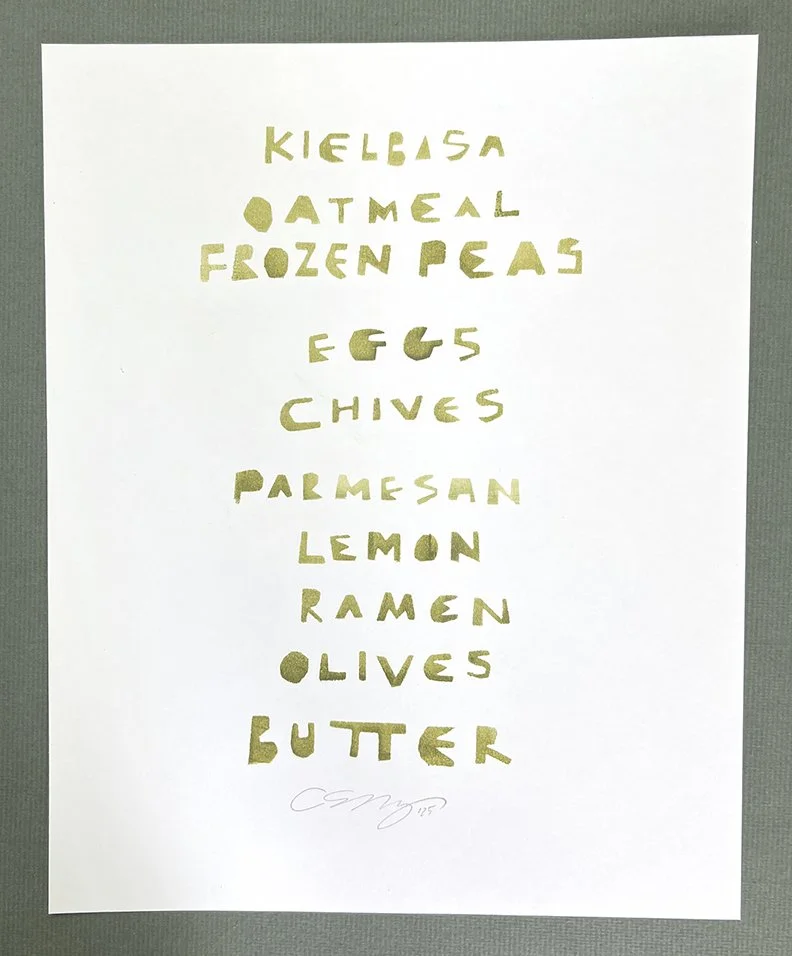 KIELBASA
OATMEAL
FROZEN PEAS
EGGS
CHIVES
PARMESAN
LEMON
RAMEN
OLIVES
BUTTER
'25